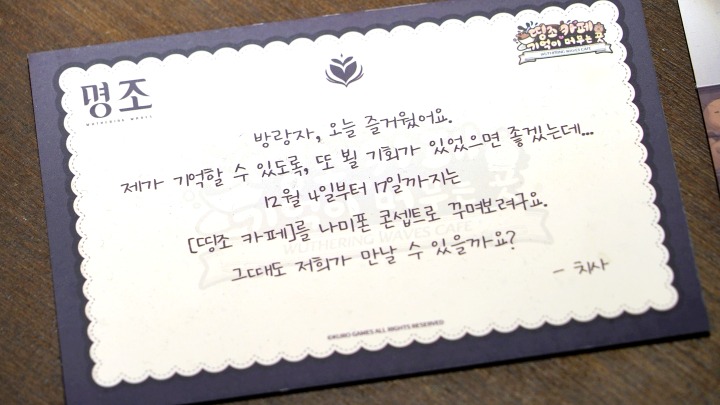 명조
WUTHERING WAVES
띵조 카페
기억이 머무는 곳
WUTHERING WAVES CAFE
방랑자, 오늘 즐거웠어요.
제가 기억할 수 있도록, 또 뵐 기회가 있었으면 좋겠는데...
12월 4일부터 17일까지는
[띵조 카페]를 나미폰 콘셉트로 꾸며보려구요.
그때도 저희가 만날 수 있을까요?
- 치사
©KURO GAMES ALL RIGHTS RESERVED